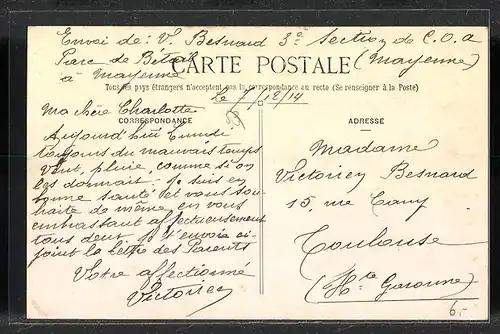 Envoi de: V. Besnard 3e Section de C.O.A
Parc de Bétail (Mayenne)
à Mayenne
CARTE POSTALE
Tous les pays étrangers n'acceptent pas la correspondance au recto (Se renseigner à la Poste)
Le 7/12/14
CORRESPONDANCE
Ma chère Charlotte
Aujourd'hui
toujours du mauvais temps
Vent, pluie, comme si on
les donnait - Je suis en
bonne santé et vous sou-
haite de même en vous
embrassant affectueusement
tous deux. Je t'envoie ci-
joint la lettre des Parents
Votre affectionné
Victorien
ADRESSE
Madame
Victorien Besnard
15, rue Cany
Toulouse
(Hte Garonne)
6.-